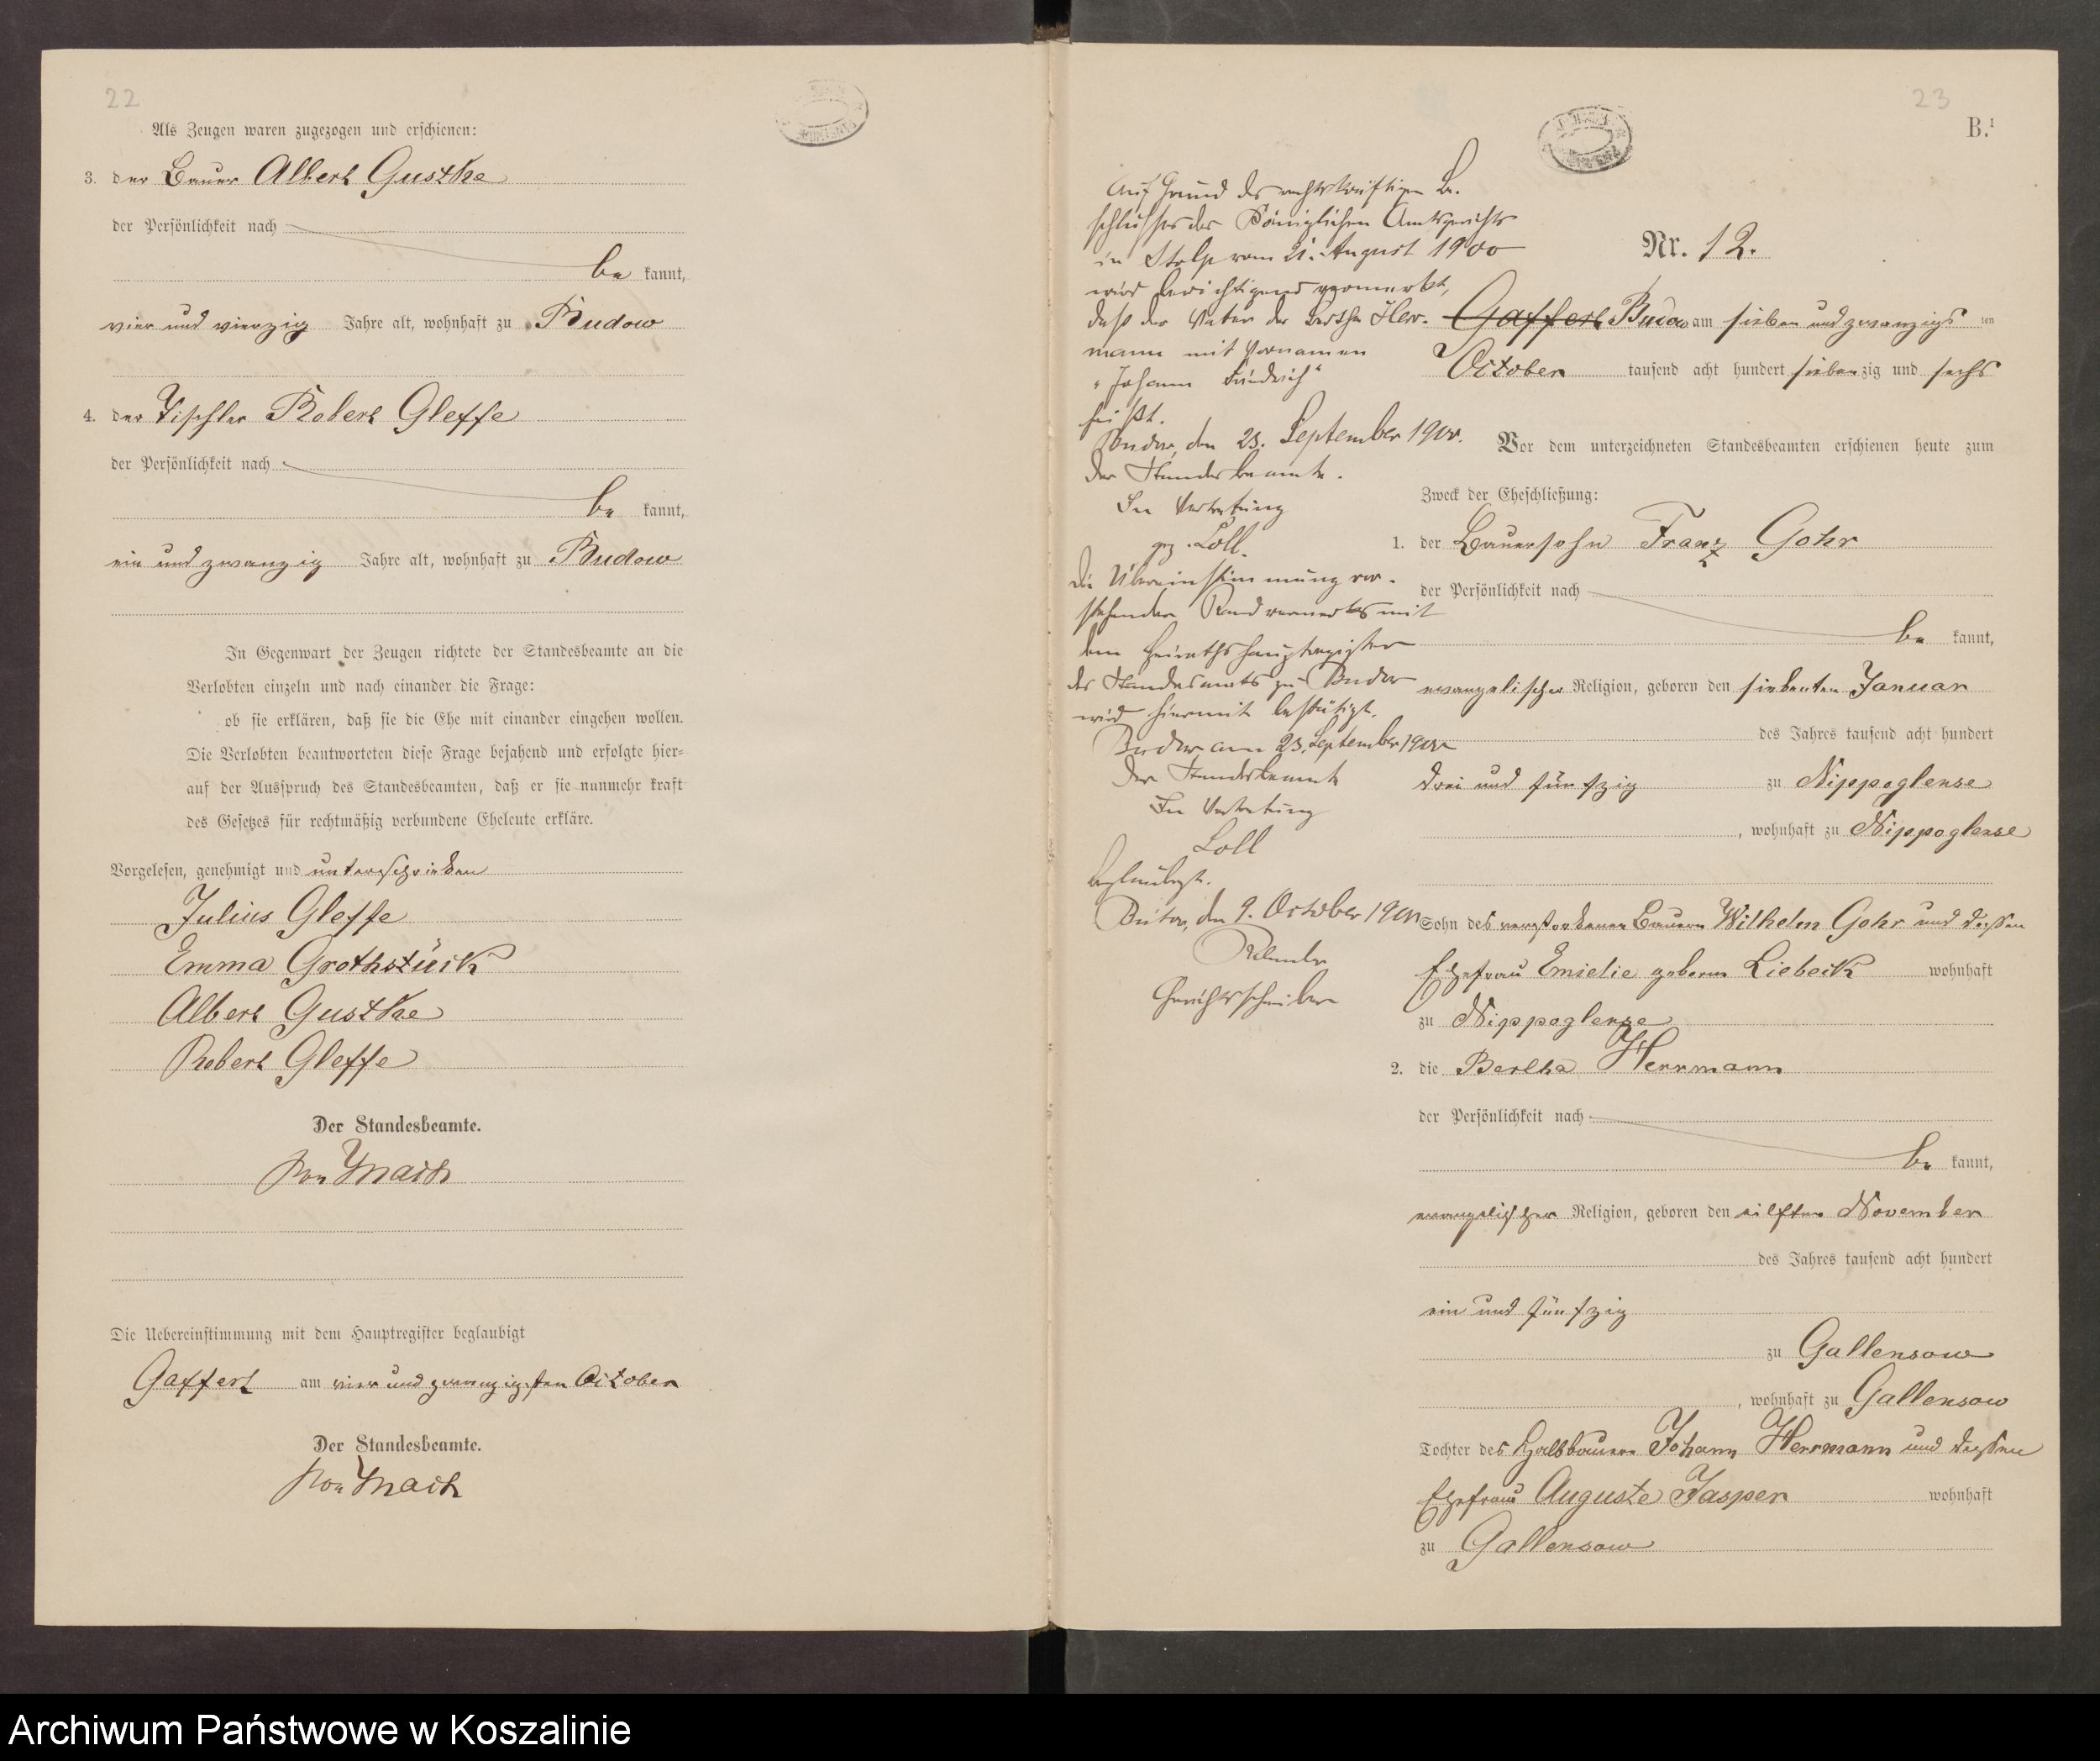 22
Als Zeugen waren zugezogen und erschienen:
3. der Bauer Albert Gustke
der Persönlichkeit nach
be kannt,
vier und vierzig Jahre alt, wohnhaft zu Budow
4. der Tischler Robert Gleffe
der Persönlichkeit nach
be kannt,
ein und zwanzig Jahre alt, wohnhaft zu Budow
In Gegenwart der Zeugen richtete der Standesbeamte an die
Verlobten einzeln und nach einander die Frage:
ob sie erklären, daß sie die Ehe mit einander eingehen wollen.
Die Verlobten beantworteten diese Frage bejahend und erfolgte hier-
auf der Ausspruch des Standesbeamten, daß er sie nunmehr kraft
des Gesetzes für rechtmäßig verbundene Eheleute erkläre.
Vorgelesen, genehmigt und unterschrieben
Julius Gleffe
Emma Grothstück
Albert Gustke
Robert Gleffe
Der Standesbeamte.
von Mach
Die Uebereinstimmung mit dem Hauptregister beglaubigt
Gaffert am vier und zwanzigsten October
Der Standesbeamte.
von Mach
23
B.
Auf Grund des rechtskräftigen Be-
schlusses des Königlichen Amtsgerichts
in Stolp vom 21. August 1900
wird berichtigend vermerkt,
daß der Vater der Bertha Herr-
mann mit Vornamen
"Johann Friedrich"
heißt.
Budow, den 23. September 1900.
Der Standesbeamte.
In Vertretung
gez. Loll.
Die Übereinstimmung vor-
stehenden Randvermerkes mit
dem Heirathshauptregister
des Standesamts zu Budow
wird hiermit bestätigt.
Budow am 23. September 1900
Der Standesbeamte
In Vertretung
Loll
Beglaubigt.
den 9. October 1900
Gerichtsschreiber
Nr. 12.
Gaffert Budow am sieben und zwanzigs ten
October tausend acht hundert siebenzig und sechs
Vor dem unterzeichneten Standesbeamten erschienen heute zum
Zweck der Eheschließung:
1. der Bauersohn Franz Gohr
der Persönlichkeit nach
be kannt,
evangelischer Religion, geboren den siebenten Januar
des Jahres tausend acht hundert
drei und fünfzig zu Nippoglense
, wohnhaft zu Nippoglense
Sohn des verstorbenen Bauern Wilhelm Gohr und dessen
Ehefrau Emielie geboren Liebeck wohnhaft
zu Nippoglense
2. die Bertha Herrmann
der Persönlichkeit nach
be kannt,
evangelischer Religion, geboren den eilften November
des Jahres tausend acht hundert
ein und fünfzig
zu Gallensow
, wohnhaft zu Gallensow
Tochter des Halbbauern Johann Herrmann und dessen
Ehefrau Auguste Jasper wohnhaft
zu Gallensow
Archiwum Państwowe w Koszalinie